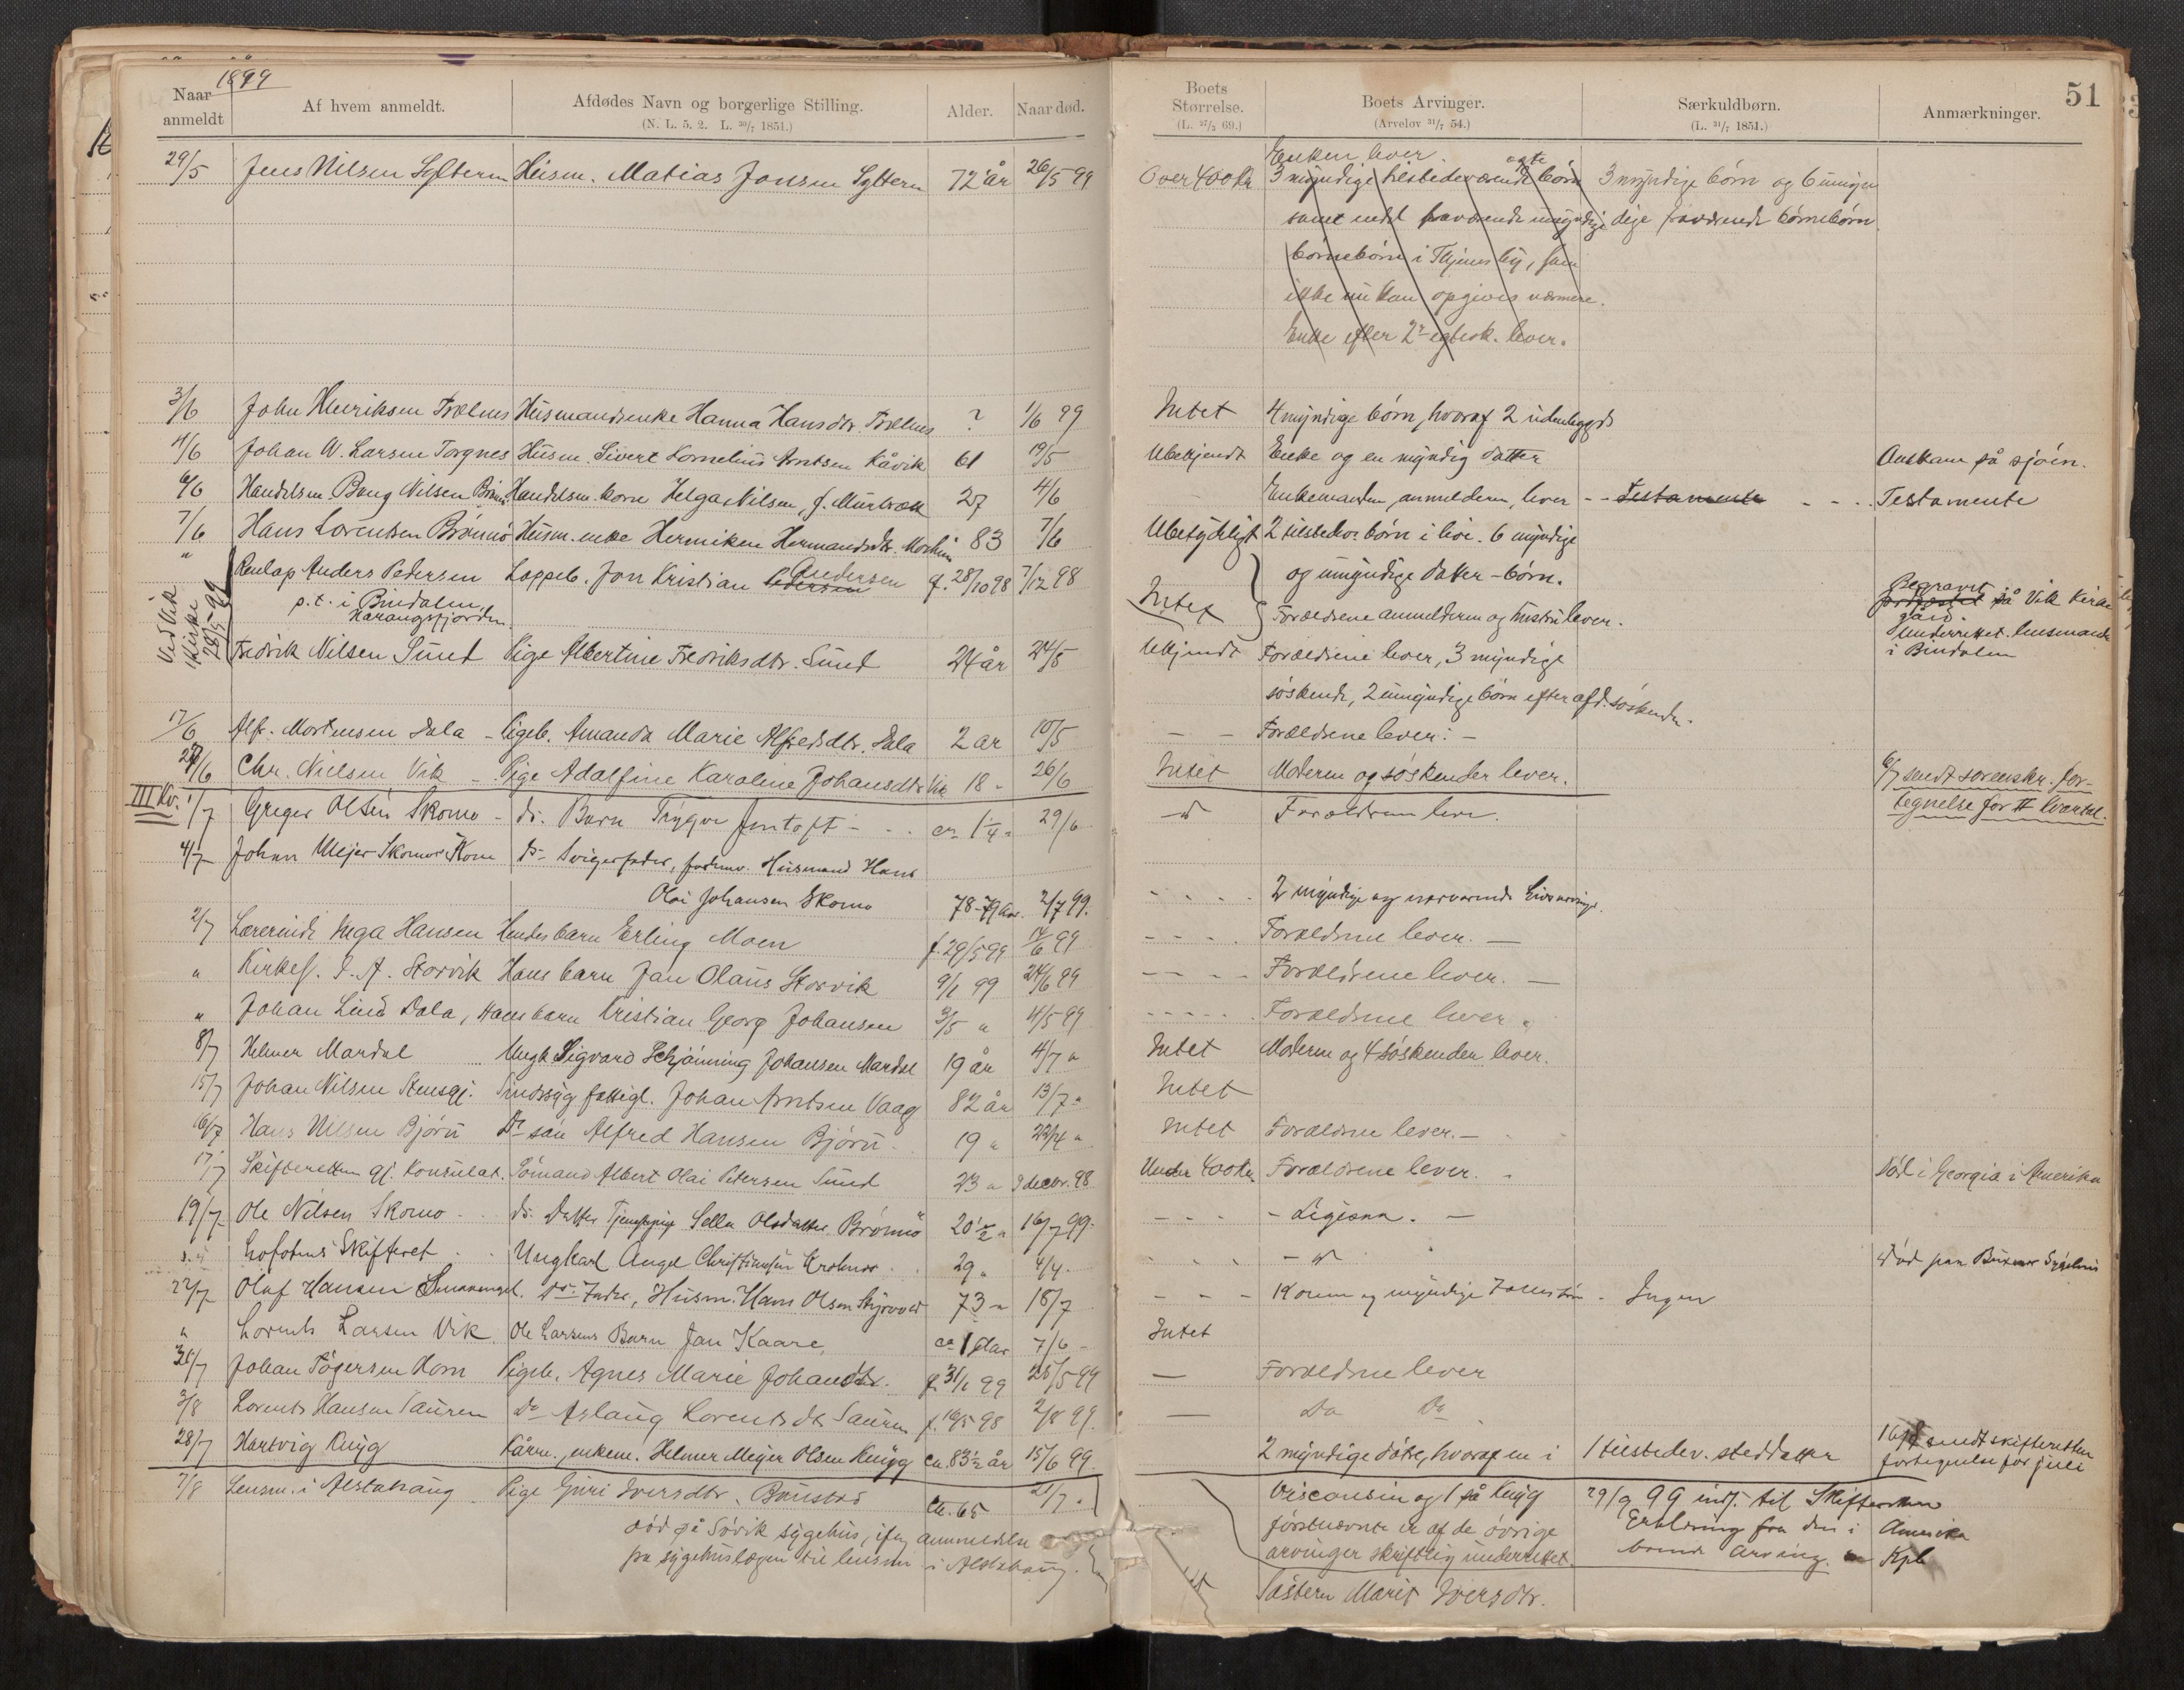 1899
51
Naar anmeldt
Af hvem anmeldt.
Afdødes Navn og borgerlige Stilling.
(N. L. 5. 2. L. 30/7 1851.)
Alder.
Naar død.
Boets Størrelse.
(L. 27/3 69.)
Boets Arvinger.
(Arvelov 31/7 54.)
Særkuldbørn.
(L. 31/7 1851.)
Anmærkninger.
29/5 Jens Nilsen Sÿltern Húsm. Matias Jonsen Sÿltern 72 år 26/5 99 Over 400 kr Enken lever.
3 myndige tilstedeværende ægte børn 3 myndige børn og 6 umyn
samt endel fraværende umyndige dige fraværende børnebørn.
børnebørn i Thjems by, som
ikke nu kan opgives nærmere.
Enke efter 2. egtesk. lever.
3/6 John Henriksen Trælnes Húsmandsenke Hanna Hansdtr. Trælnes ? 1/6 99 Intet 4 myndige børn, hvoraf 2 udenbygds
4/6 Johan W. Larsen Torgnes Húsm. Sivert Kornelius Arntsen Kåvik 61 19/5 Ubekjendt Enke og en myndig datter Omkom på sjøen.
6/6 Handelsm. Bang Nilsen Brønnø Handelsm. kone Helga Nilsen, f. 27 4/6 Enkemanden, anmelderen, lever - - Testamente - - Testamente
7/6 Hans Lorentsen Brønnø Húsm. enke Henriken Hermandsdtr. 83 7/6 Ubetydeligt 2 tilstedev. børn i live. 6 myndige
og umyndige datter-børn.
" Renlap Anders Pedersen Lappeb. Jon Kristian Pedersen Andersen f. 28/10 98 7/12 98
p. t. i Bindalen, Harangsfjorden Intet Forældrene anmelderen og hustru lever. Begravet på Vik Kirkegård.
Underrettet lensmanden i Bindalen
Ved Vik Kirke 28/5 99
Fredrik Nilsen Sund Pige Albertine Fredriksdtr. Sund 24 år 24/5 Ukjendt Forældrene lever, 3 myndige
søskende, 2 umyndige børn efter afd. søskende.
17/6 Alf. Mortensen Dala - Pigeb. Amanda Marie Alfredsdtr. Dala 2 år 10/5 - - Forældrene lever. -
27/6 Chr. Nielsen Vik - Pige Adalfine Karoline Johansdtr. Vik 18 - 26/6 Intet Moderen og søskender lever. 6/7 sendt sorenskr. for-
tegnelse for II Kvartal.
III Kv. 1/7 Greger Olsen Skomo - ds. Barn Trygve Jentoft - ca 1 1/4 " 29/6 Forældrene lever.
4/7 Johan Meyer Skomo Ds. Svigerfader, forhenv. Húsmand Hans
Olai Johansen Skomo 78-79 Aar. 2/7 99. 2 myndige og nærværende Livsarvinger.
2/7 Lærerinde Inga Hansen Hendes barn Erling Moen f. 29/5 99 14/6 99 - - - Forældrene lever. -
" Kirkes. J. A. Storvik Hans barn Jan Olaus Storvik 9/1 99 24/6 99 - - - Forældrene lever. -
" Johan Lund Dala, Hans barn Kristian Georg Johansen 3/5 " 4/5 99 - - - Forældrene lever.
8/7 Helmer Mardal Ungk Sigvard Schjønning Johansen Mardal 19 år 4/7 " Intet Moderen og 4 søskender lever.
15/7 Johan Nilsen Stensgj. Sindssyg fattigl. Johan Arntsen Vaag 82 år 13/7 " Intet
16/7 Hans Nilsen Bjørú Ds søn Alfred Hansen Bjørú. 19 " 22/4 " Intet Forældrene lever. -
17/7 Skifteretten gj. Konsulat. Sømand Albert Olai Petersen Sund 23 " 9 decbr. 98 Under 400 kr. Forældrene lever. Død i Georgia i Amerika
19/7 Ole Nilsen Skomo ds. Datter Tjenestepige Sella Olsdatter Brønnø 20 1/2 " 16/7 99. - - - Ligesaa. -
Lofotens Skifteret Ungkarl Angel Christiansen 29 " 4/4. Død paa Buxnes Sygehus
22/7 Oluf Hansen ds. Fader, Húsm. Hans Olsen 73 " 18/7 - - - Konen og myndige Fællesbørn - Ingen
" Lorents Larsen Vik Ole Larsens Barn Jan Kaare, ca 1 Aar 7/6 - Intet
31/7 Johan Tøgersen Horn Pigeb. Agnes Marie Johansdtr. f. 31/1 99 25/5 99 - Forældrene lever
3/8 Lorents Hansen Sauren Do Aslaug Lorentsdtr Sauren f. 16/5 98 2/8 99. - Do Do
28/7 Hartvig Knÿg Kårm., enkem. Helmer Meyer Olsen Knÿg ca. 83 1/2 år 15/6 99. 2 myndige døtre, hvoraf en i 1 tilstedev. steddatter 16/8 sendt skifteretten
fortegnelse for juli
Visconsin og 1 på Knÿg 29/9 99 indb. til Skifteretten
førstnævnte er af de øvrige Erklæring fra den i Amerika
arvinger skriftlig underrettet. boende Arving.
7/8 Lensm. i Alstahaug Pige Guri Iversdtr. Bånstad ca. 65 21/7 "
død på Søvik sygehus, iføg anmeldelse
fra sygehuslægen til lensm. i Alstahaug.
Søsteren Marit Iversdtr.